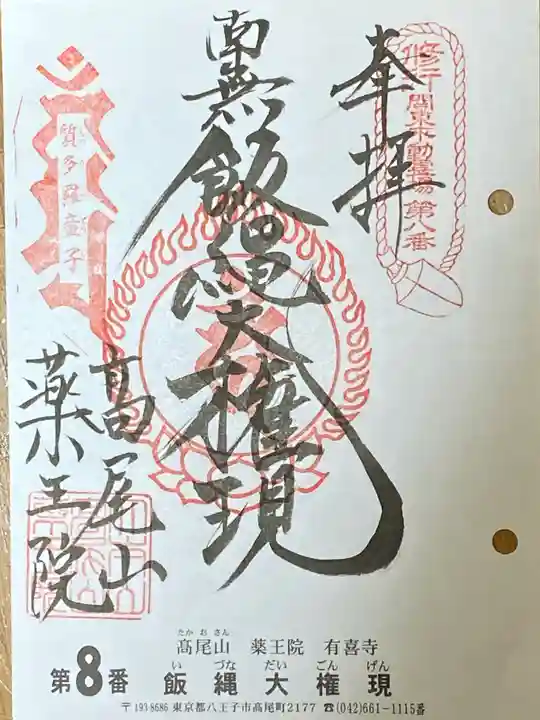 修行 関東不動霊場 第八番
奉拝
南無飯縄大権現
質多羅童子
高尾山
薬王院
たかおさん
髙尾山 薬王院 有喜寺
い づな だい ごん げん
第8番 飯縄大権現
〒193-8686 東京都八王子市高尾町2177 ☎(042)661-1115番